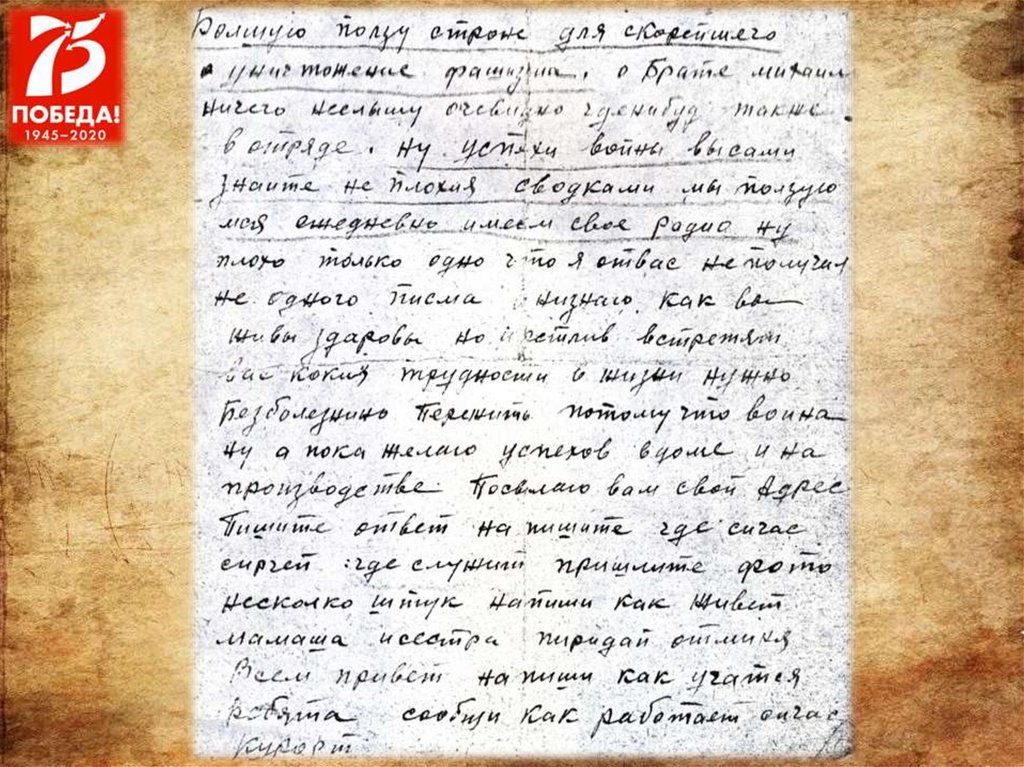 75
ПОБЕДА!
1945–2020
Болшую ползу строне для скорейшего
уничтожение фашизма. о Брате михаил
ничего неслышу очевидно гденибуд также
вотряде. ну успехи войны высами
знаите не плохия сводками мы ползую
мся ежедневно имеем свое радио ну
плохо только одно что я отвас не получил
не одного писма низнаю как вы
живы здаровы но естлив встретят
вас кокия трудности в жизни нужно
Безболезнино Пережить потомучто воина
ну а пока желаю успехов вдоме и на
производстве. Посылаю вам свой Адрес
Пишите ответ напишите где сичас
сиргей где служит пришлите фото
несколко штук напиши как живет
мамаша исестра пиридай отминя
Всем привет напиши как учатся
робята сообщи как работает сичас
курорт